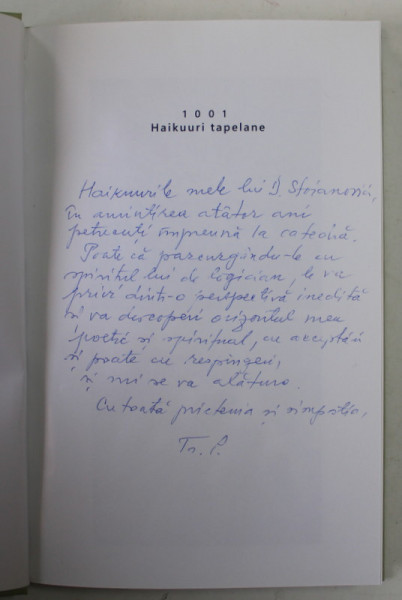 1 0 0 1
Haikuuri tapelane
Haikuurile mele lui D. Stoianovici,
în amintirea atâtor ani
petrecuți împreună la catedră.
Poate că parcurgându-le cu
spiritul lui de logician, le va
privi dintr-o perspectivă inedită
și va descoperi orizontul meu
poetic și spiritual, cu acceptări
și poate cu respingeri,
și mi se va alătura.
Cu toată prietenia și simpatia,
Tr. P.